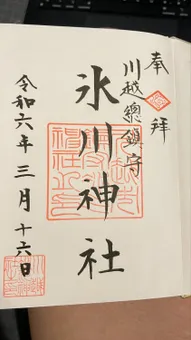 奉拜
川越總鎮守
氷川神社
令和六年三月十六日